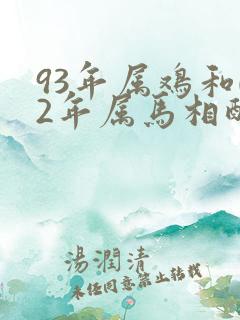 93年属鸡和
2年属马相配
湯潤清
未经同意禁止转载